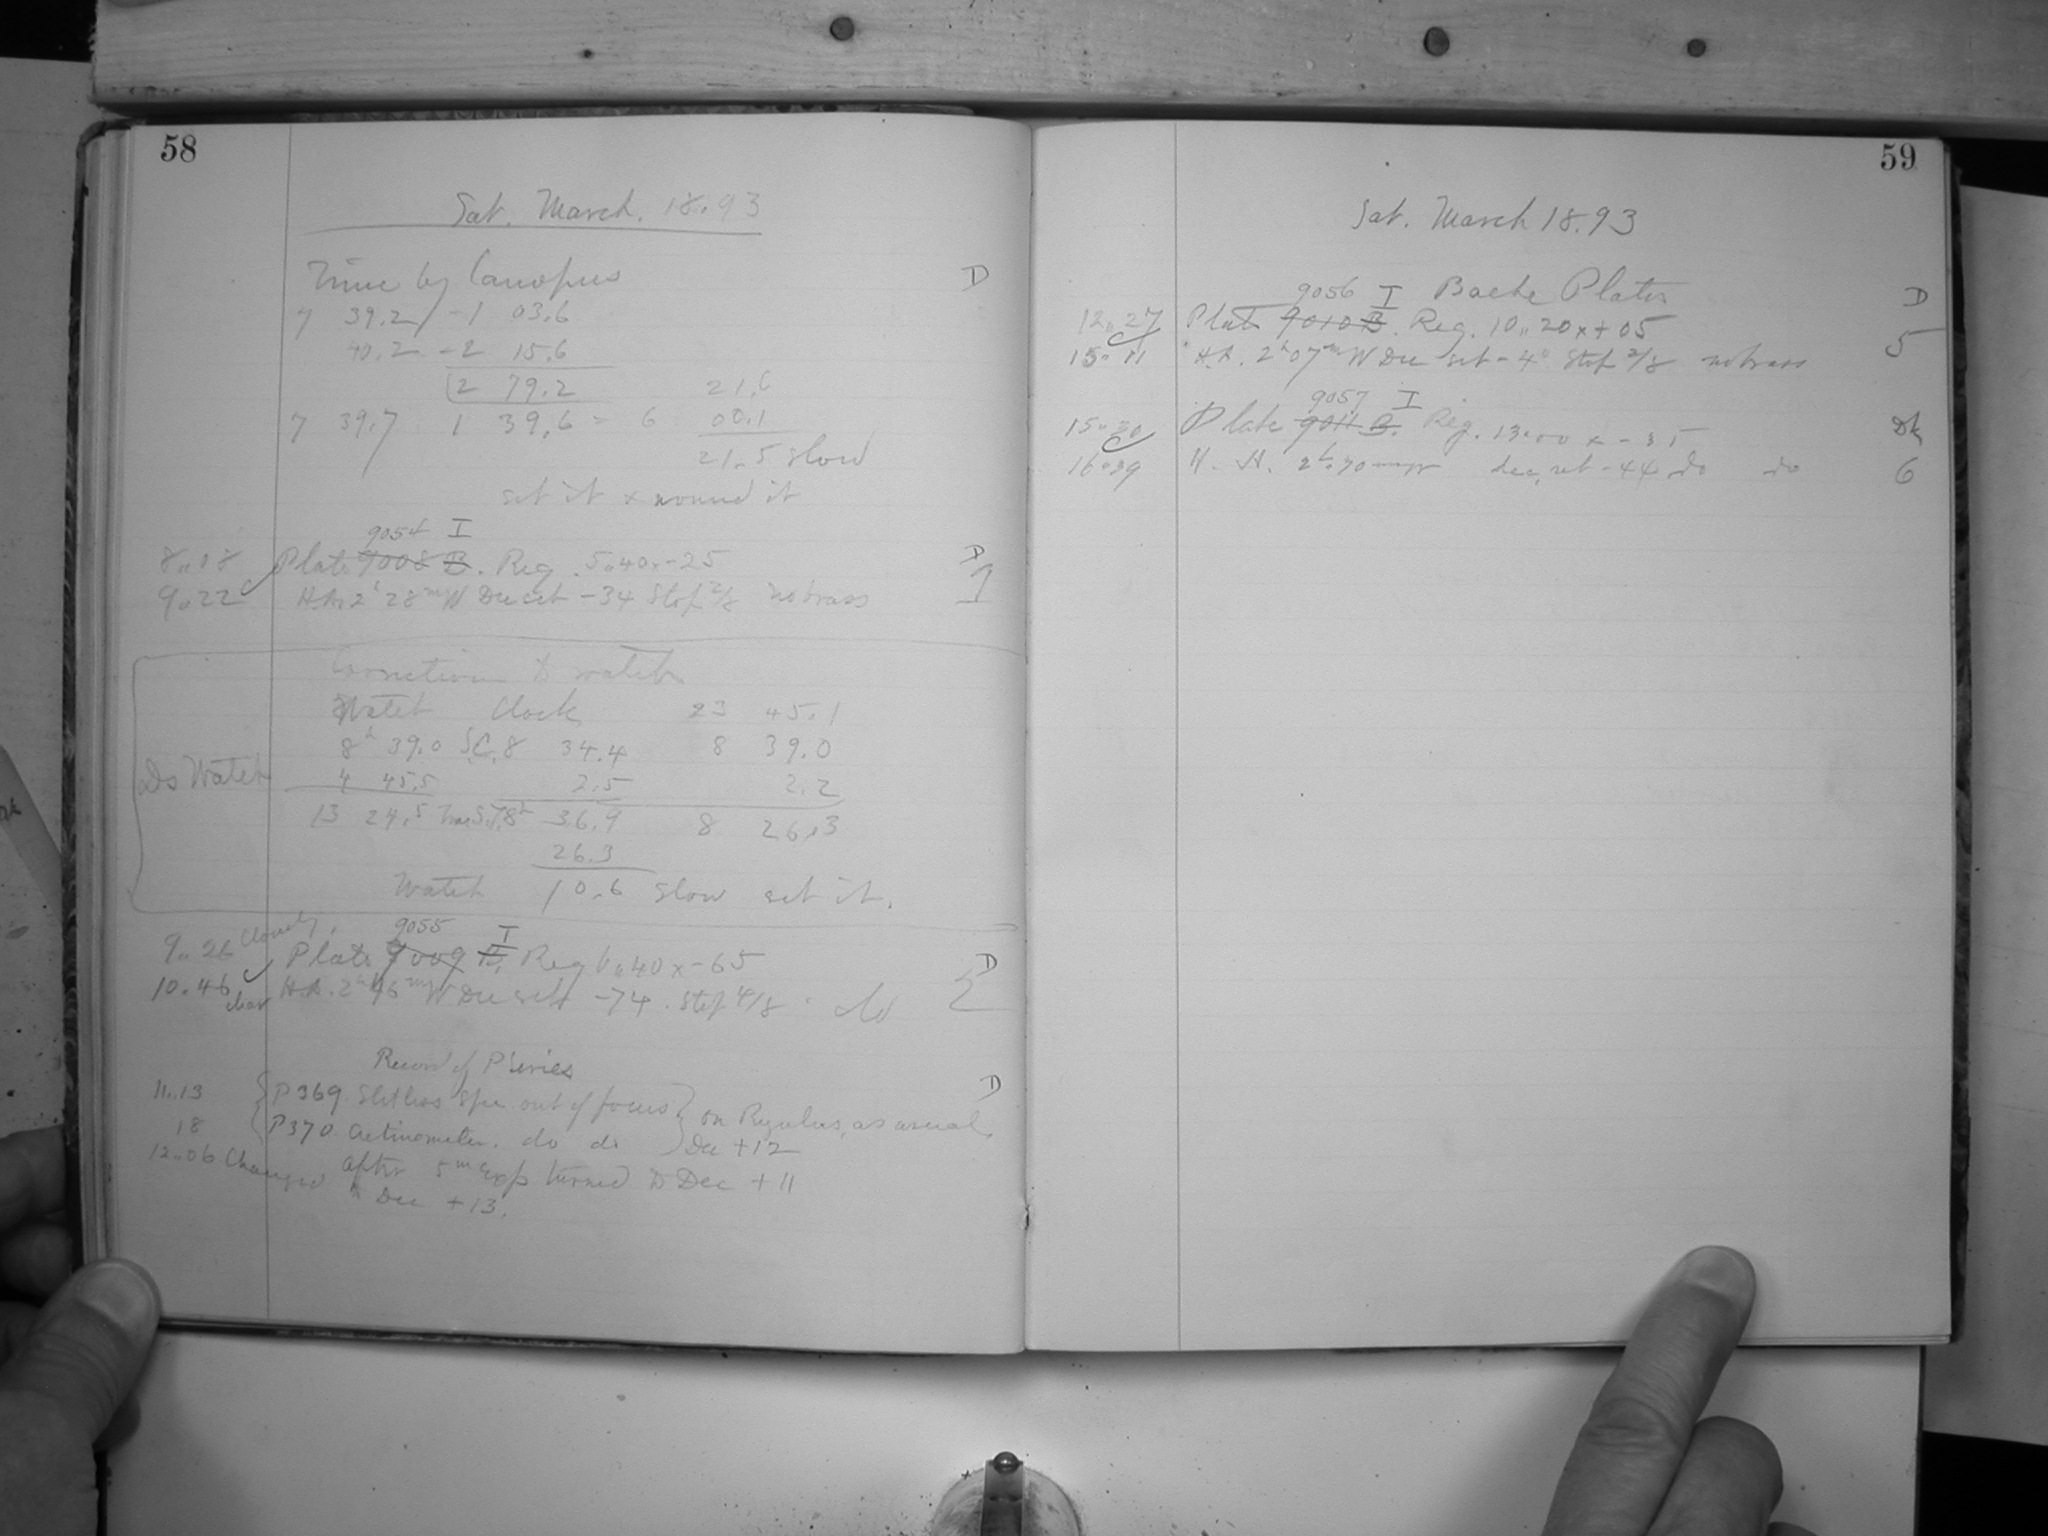 58
Sat. March. 18.93
Time by Canopus D
7 39.2 -1 03.6
40.2 -2 15.6
2 79.2 21.6
7 39.7 1 39.6 = 6 00.1
21.5 slow
set it & wound it
9054 I
8.08 Plate 9008 B. Reg. 5.40 x -25 D
9.22 H.A. 2h 28m W Dec set -34 Stop 2/8 no brass 1
Correction to watch
Watch Clock 23 45.1
8h 39.0 S.C. 8 34.4 8 39.0
Ds Watch 4 45.5 2.5 2.2
13 24.5 True S.T. 8h 36.9 8 26.3
26.3
Watch 10.6 slow set it.
9055 I
9.26 cloudy. Plate 9009 B. Reg 6.40 x -65 D
10.46 clear H.A. 2h 46m W Dec set -74. Stop 4/8 do 2
Record of P series
11.13 P369. Slitless Spec out of focus on Regulus, as usual, D
18 P370. Actinometer. do do Dec +12
12.06 Changed after 5m exp turned to Dec +11
" Dec +13.
59
Sat. March 18.93
9056 I Bache Plates D
12.27 Plate 9010 B. Reg. 10.20 x + 05 5
15.11 H.A. 2h 07m W Dec set -4° Stop 2/8 no brass
9057 I
15.20 Plate 9011 B. Reg. 13.00 x -35 Dk
16.39 H. A. 2h. 30m W dec, set -44 do do 6